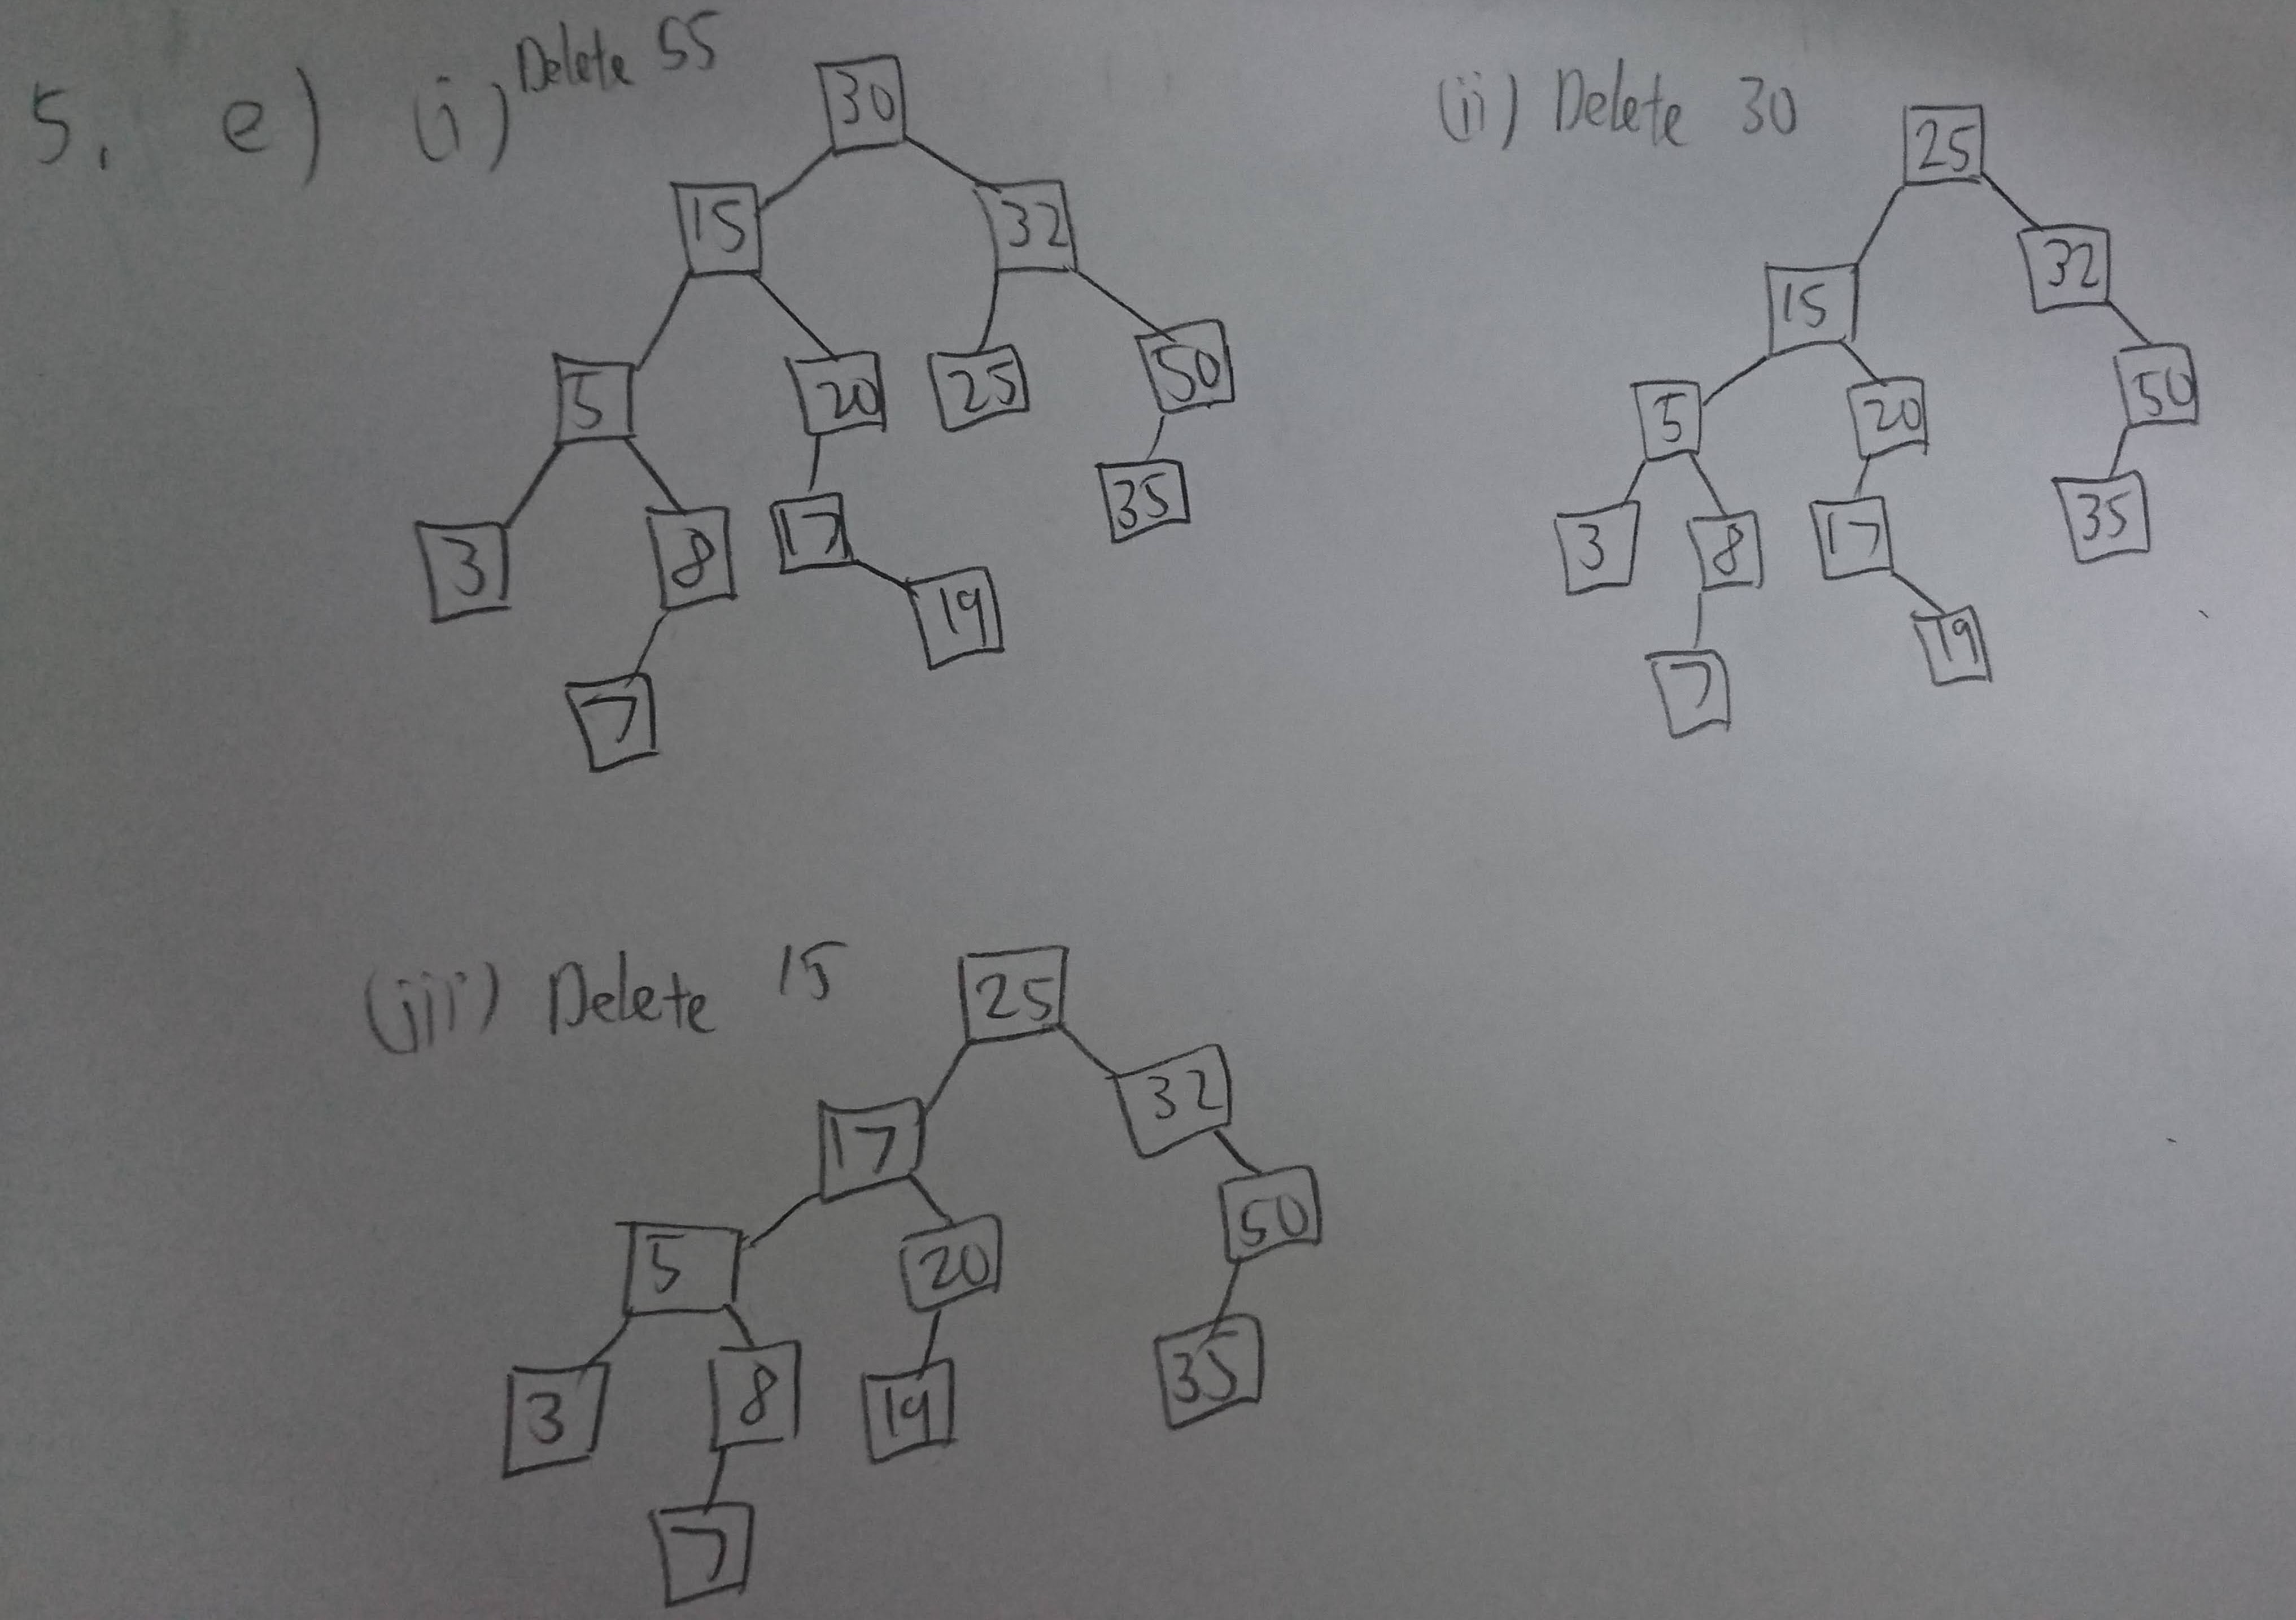 5. e) (i) Delete 55
30
15 32
5 20 25 50
3 8 17 35
19
7
(ii) Delete 30
25
32
15
5 20 50
3 8 17 35
7 19
(iii) Delete 15
25
32
17
5 20 50
3 8 19 35
7